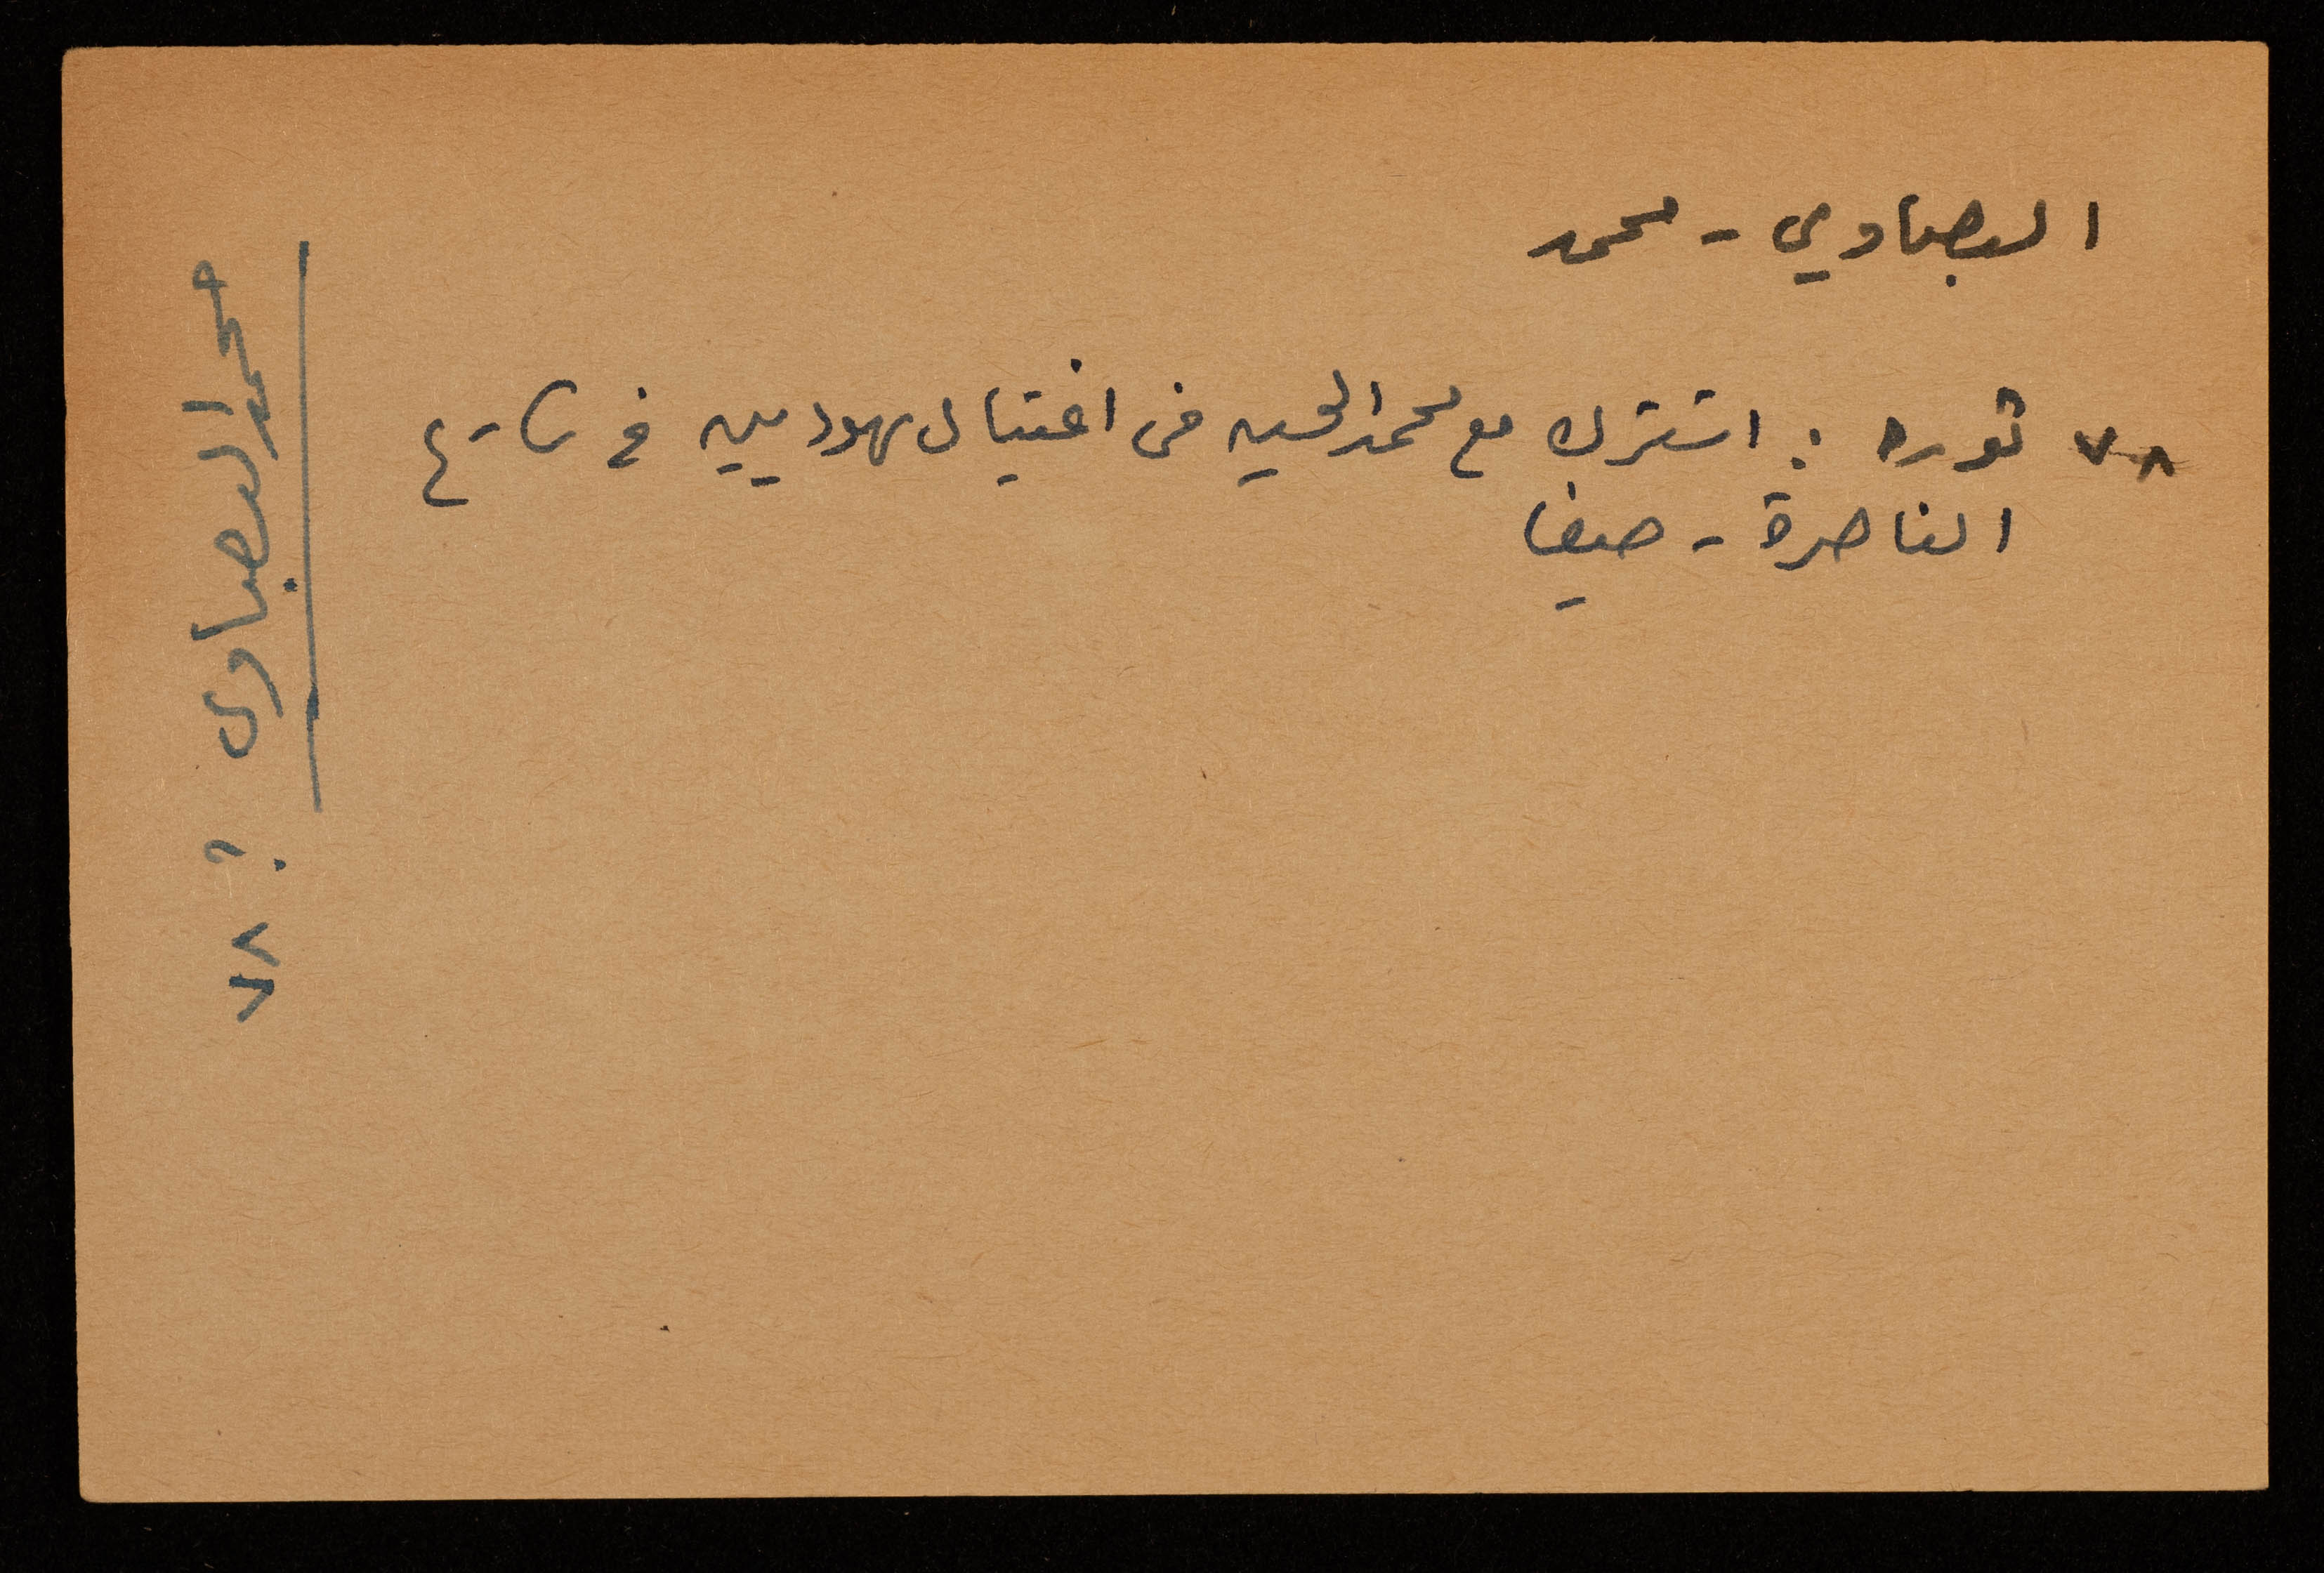 البصاوي - محمد
٧٨ ثوره : اشترك مع محمد الحسين في اغتيال يهوديين في شارع
الناصرة - حيفا
محمد البصاوى ؟ ٧٨